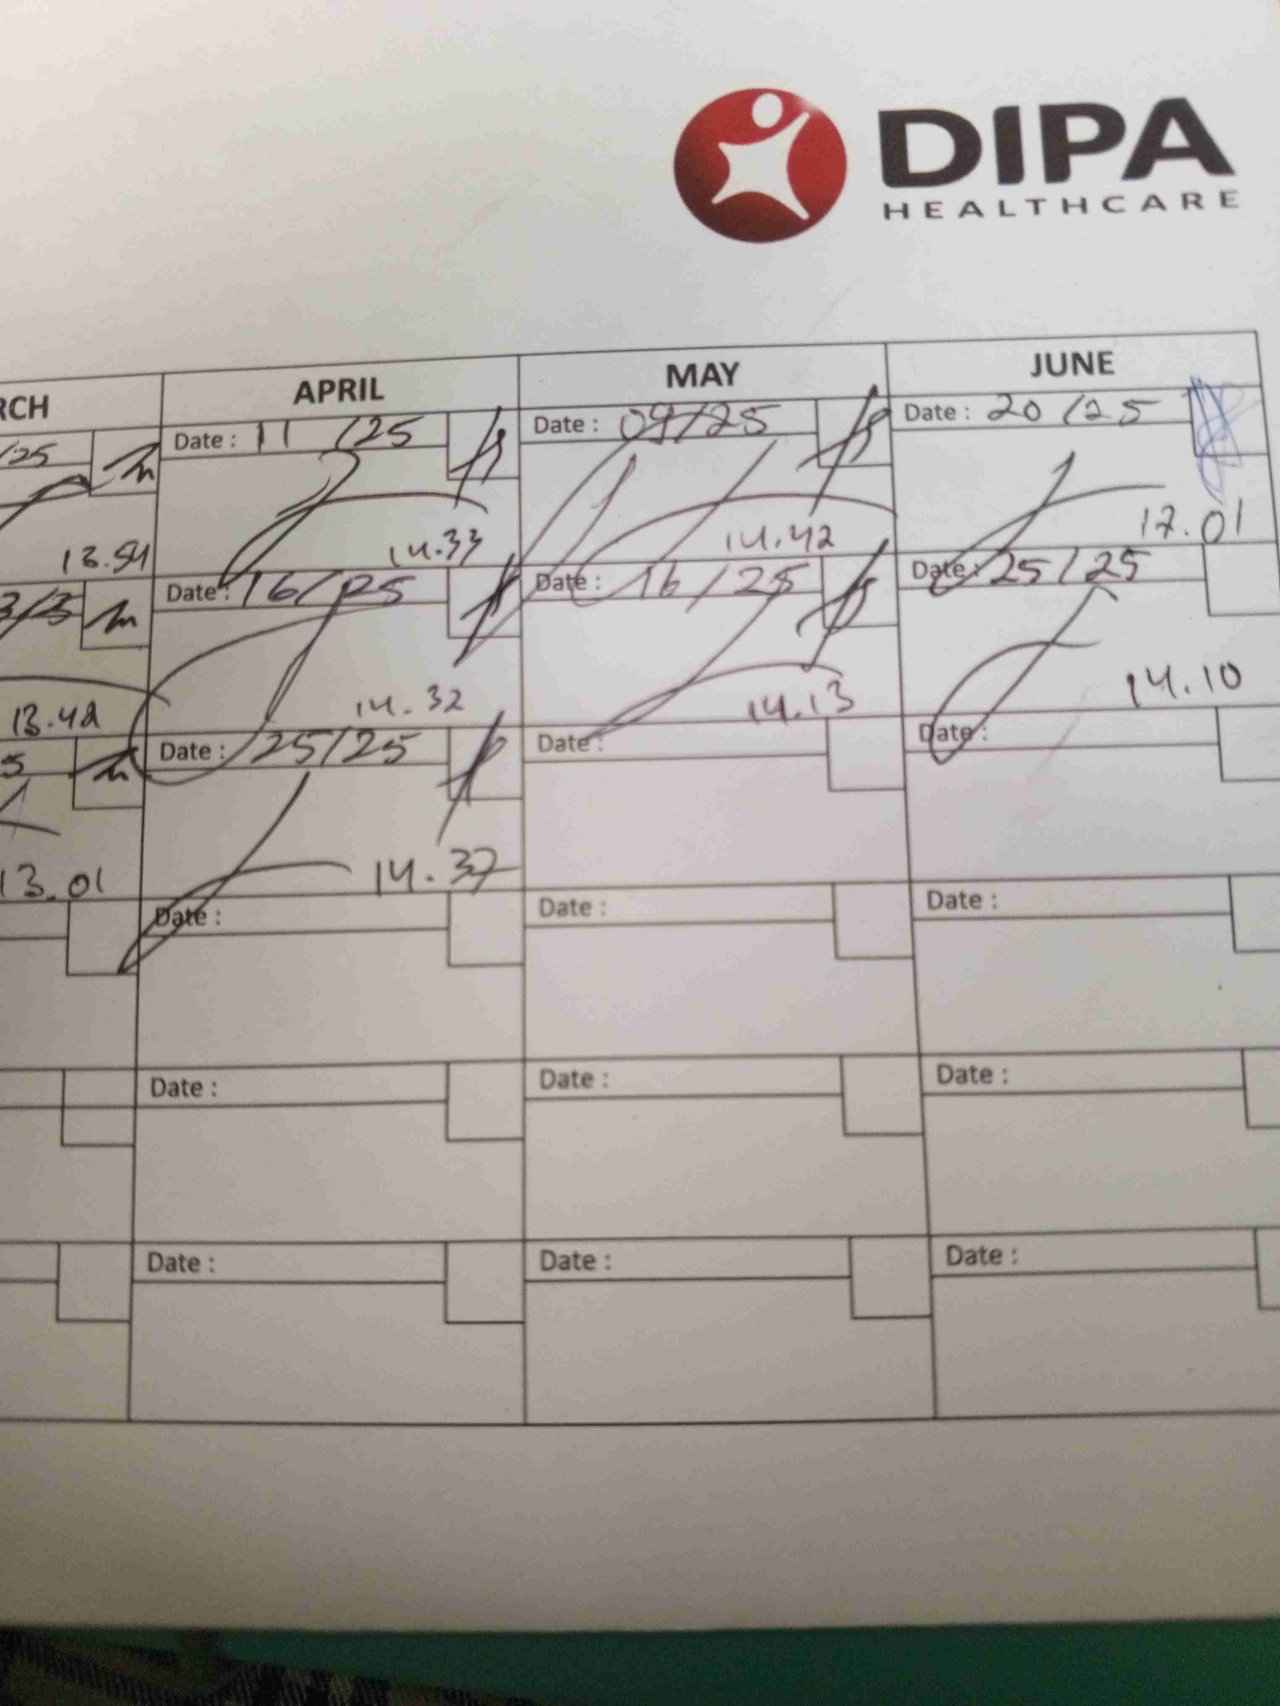 DIPA
HEALTHCARE
RCH APRIL MAY JUNE
/25 Date : 11 /25 Date : 09/25 Date : 20 /25
13.54 14.33 14.42 17.01
Date : 16/25 Date : 16/25 Date : 25/25
13.42 14.32 14.13 14.10
5 Date : 25/25 Date : Date :
13.01 14.37
Date : Date : Date :
Date : Date : Date :
Date : Date : Date :